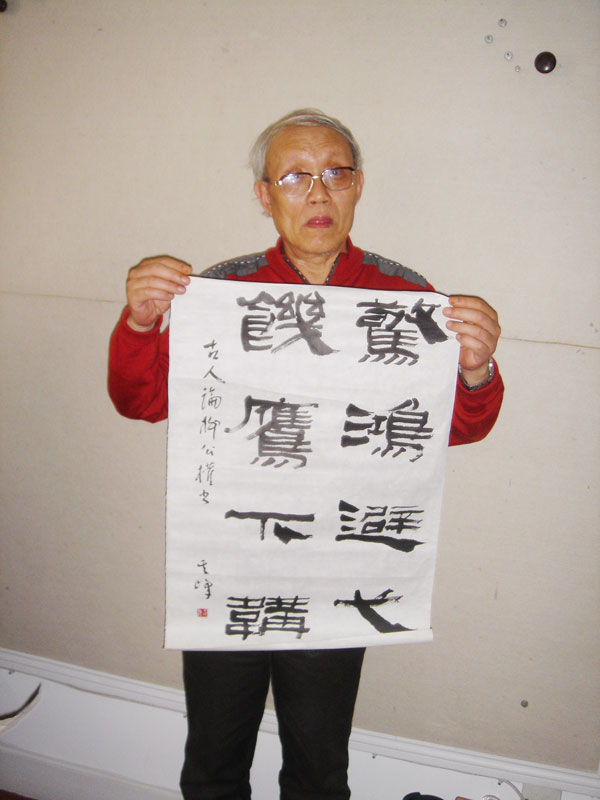 驚鴻避弋
饑鷹下韝
古人論柳公權書
峰